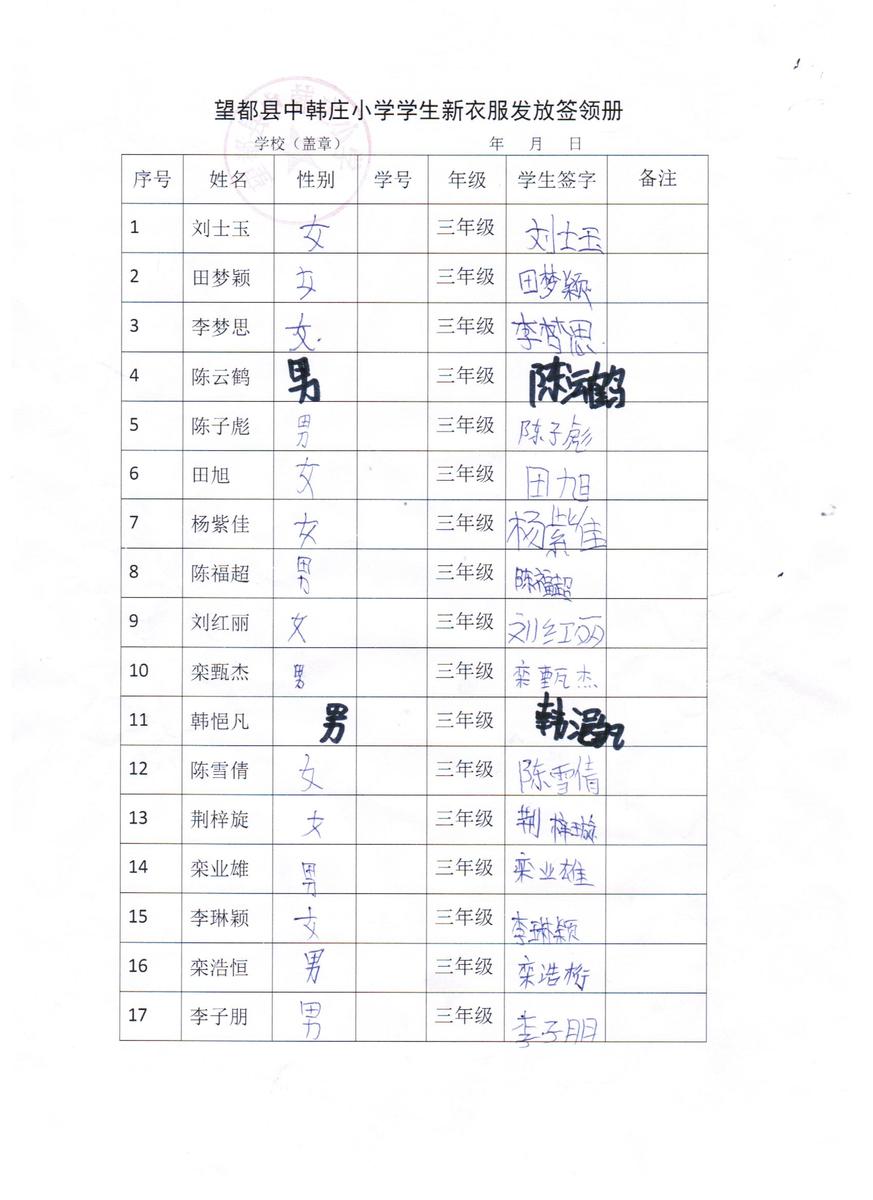 望都县中韩庄小学学生新衣服发放签领册
学校（盖章） 年 月 日
序号 姓名 性别 学号 年级 学生签字 备注
1 刘士玉 女 三年级 刘士玉
2 田梦颖 女 三年级 田梦颖
3 李梦思 女. 三年级 李梦思.
4 陈云鹤 男 三年级 陈云鹤
5 陈子彪 男 三年级 陈子彪
6 田旭 女 三年级 田旭
7 杨紫佳 女 三年级 杨紫佳
8 陈福超 男 三年级 陈福超
9 刘红丽 女 三年级 刘红丽
10 栾甄杰 男 三年级 栾甄杰
11 韩悒凡 男 三年级 韩浥凡
12 陈雪倩 女 三年级 陈雪倩
13 荆梓旋 女 三年级 荆梓璇
14 栾业雄 男 三年级 栾业雄
15 李琳颖 女 三年级 李琳颖
16 栾浩恒 男 三年级 栾浩桁
17 李子朋 男 三年级 李子朋